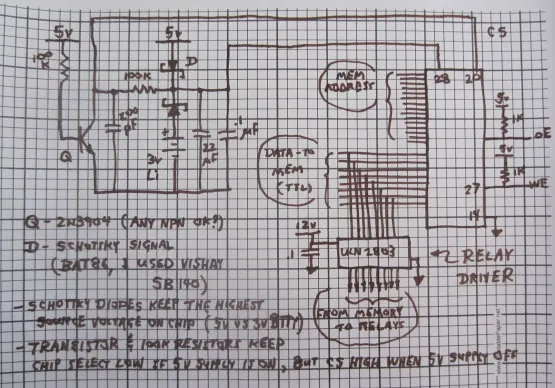 5V
5V
CS
100K
D
100K
100
pF
Q
+
3V
Li
22
µF
.1
µF
MEM
ADDRESS
28
20
5V
1K
OE
5V
1K
27
WE
14
DATA-TO
MEM
(TTL)
12V
.1
ULN2803
RELAY
DRIVER
(FROM MEMORY
TO RELAYS)
Q - 2N3904 (ANY NPN OK?)
D - SCHOTTKY SIGNAL
(BAT86, I USED VISHAY
SB190)
- SCHOTTKY DIODES KEEP THE HIGHEST
SOURCE VOLTAGE ON CHIP (5V VS 3V BTTY)
- TRANSISTOR & 100K RESISTORS KEEP
CHIP SELECT LOW IF 5V SUPPLY IS ON, BUT CS HIGH WHEN 5V SUPPLY OFF